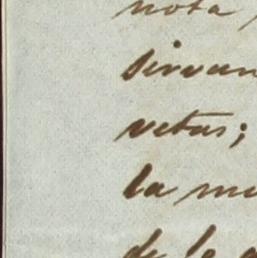 nota
sirvan
vetas;
la m
de la